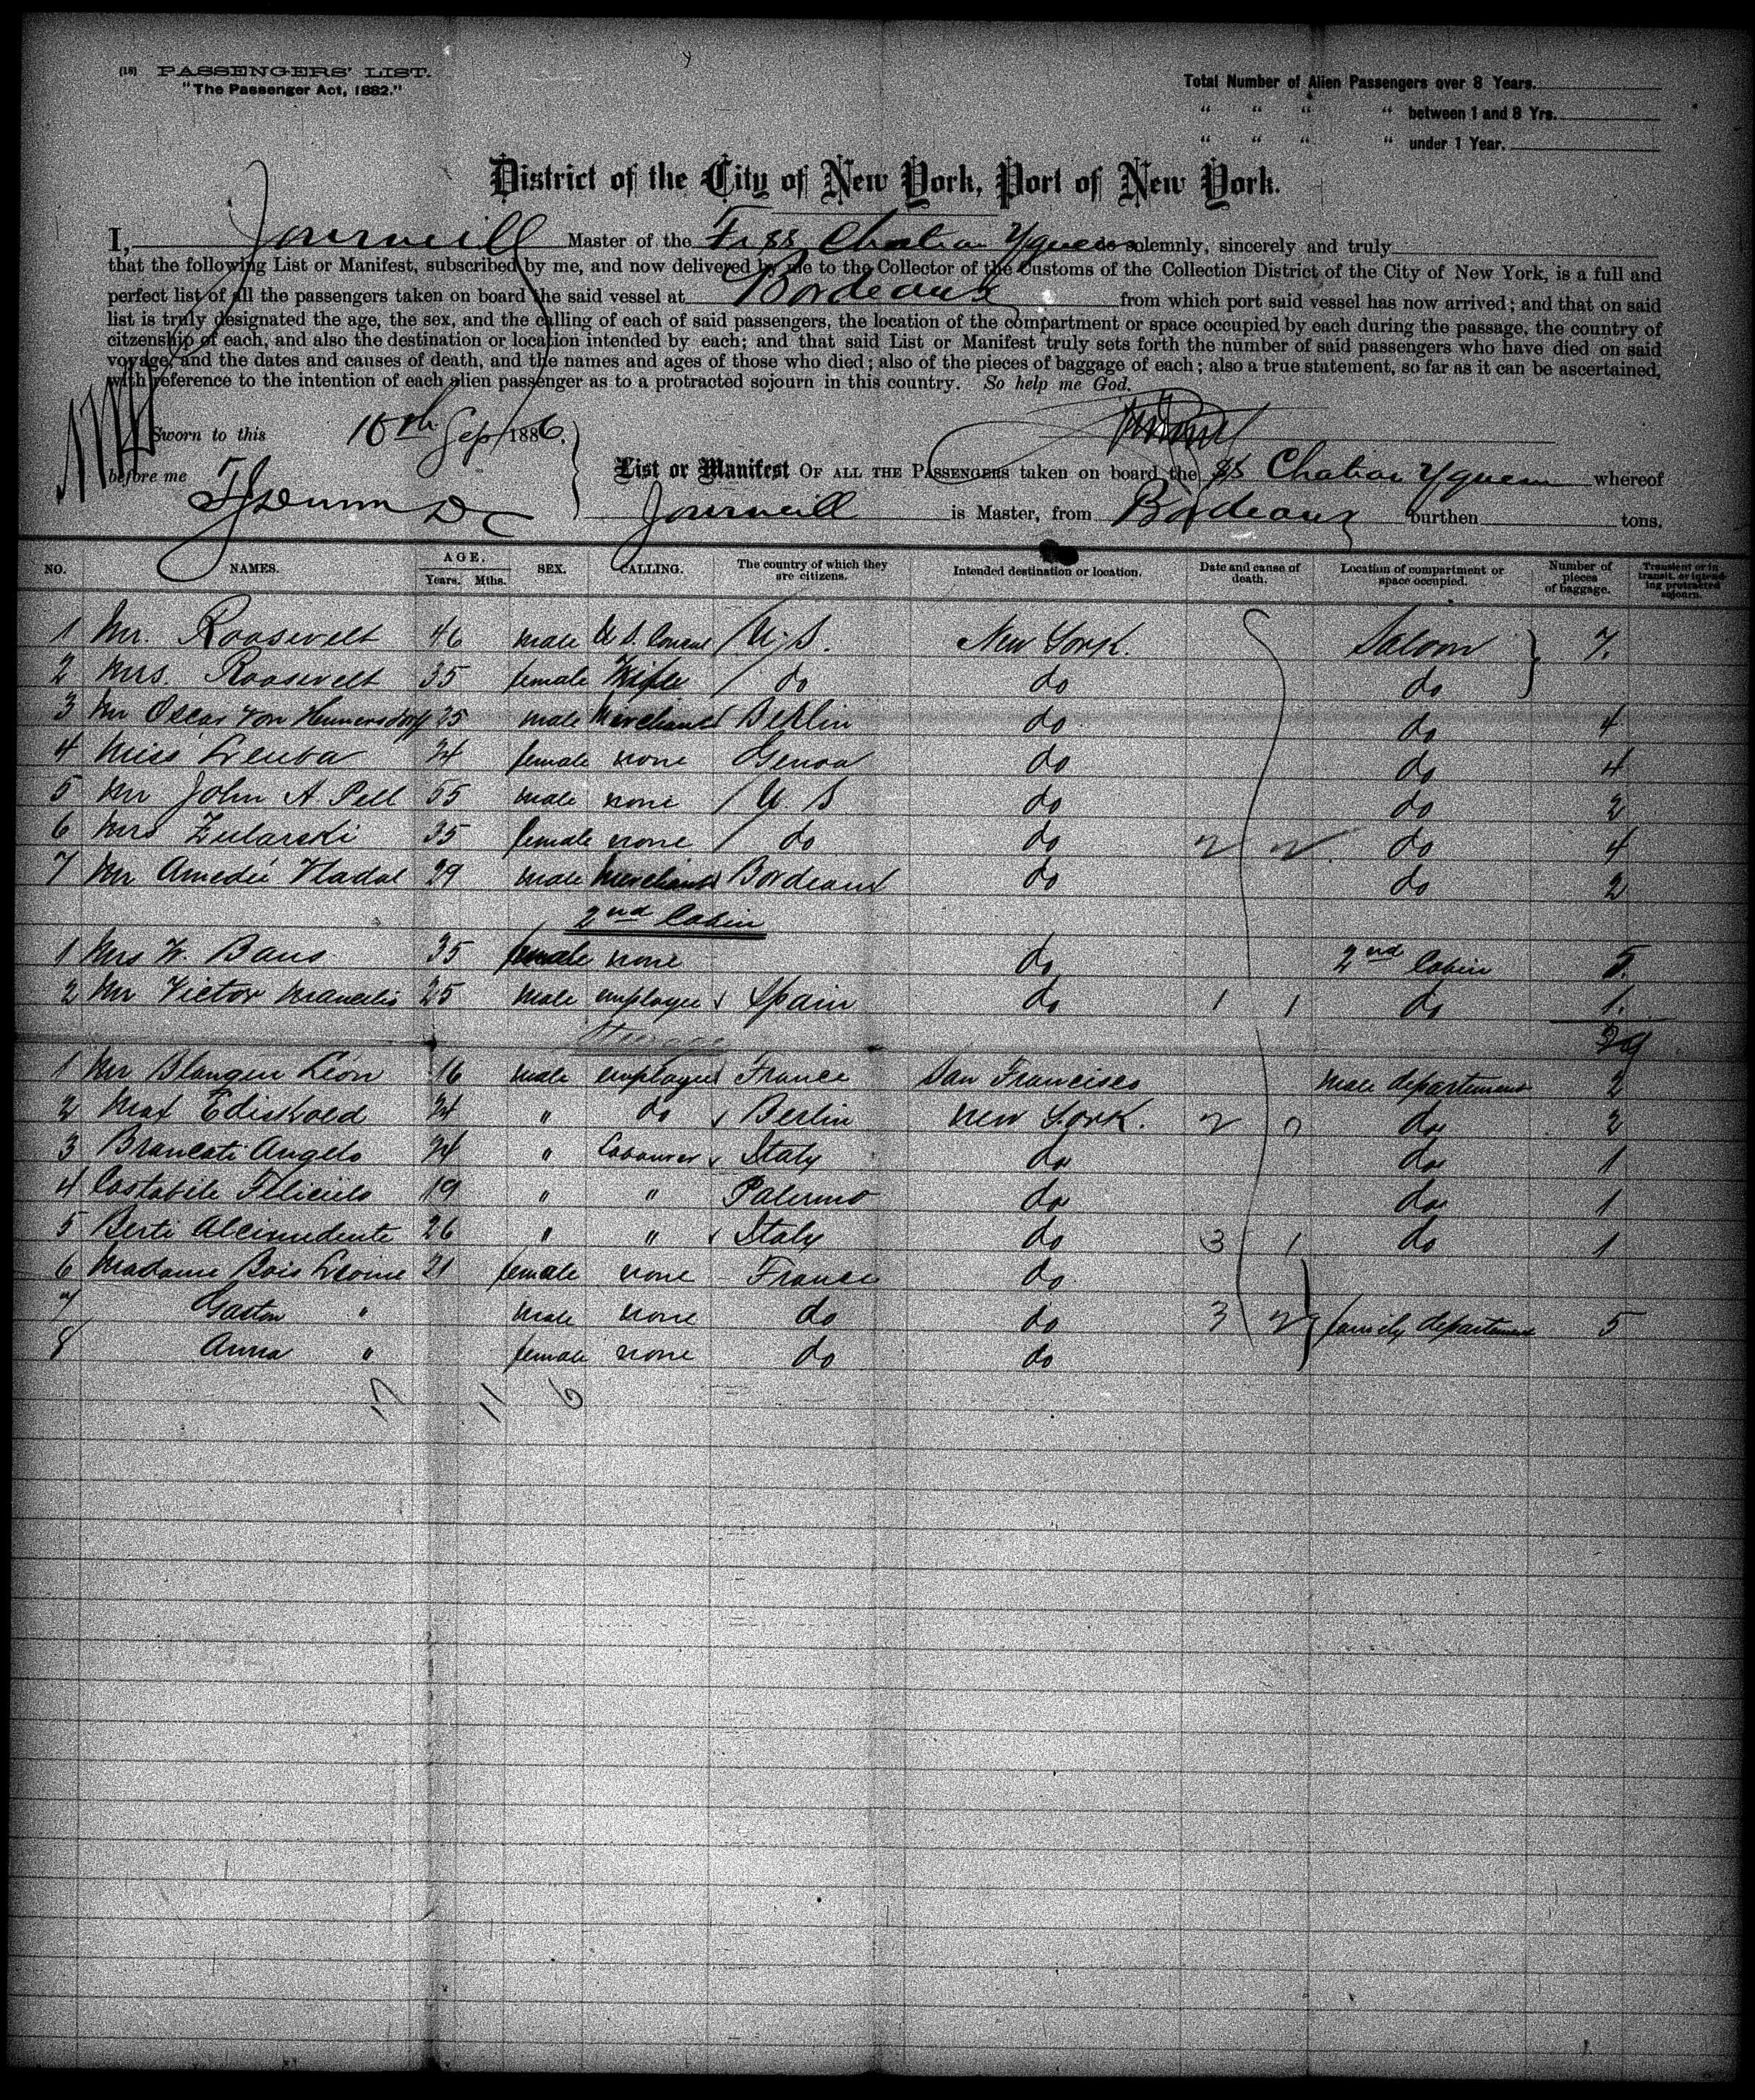 (18) PASSENGERS' LIST.
"The Passenger Act, 1882."
Total Number of Alien Passengers over 8 Years.
" " " " between 1 and 8 Yrs.
" " " " under 1 Year.
District of the City of New York, Port of New York.
I, Master of the Fr SS Chateau Yquem solemnly, sincerely and truly
that the following List or Manifest, subscribed by me, and now delivered by me to the Collector of the Customs of the Collection District of the City of New York, is a full and
perfect list of all the passengers taken on board the said vessel at Bordeaux from which port said vessel has now arrived; and that on said
list is truly designated the age, the sex, and the calling of each of said passengers, the location of the compartment or space occupied by each during the passage, the country of
citzenship of each, and also the destination or location intended by each; and that said List or Manifest truly sets forth the number of said passengers who have died on said
voyage, and the dates and causes of death, and the names and ages of those who died; also of the pieces of baggage of each; also a true statement, so far as it can be ascertained,
with reference to the intention of each alien passenger as to a protracted sojourn in this country. So help me God.
Sworn to this Sep 1886.
before me
List or Manifest OF ALL THE PASSENGERS taken on board the SS Chateau Yquem whereof
is Master, from Bordeaux burthen tons.
NO. NAMES. AGE. Years. Mths. SEX. CALLING. The country of which they are citizens. Intended destination or location. Date and cause of death. Location of compartment or space occupied. Number of pieces of baggage. Transient or in transit, or intending protracted sojourn.
1 Mr. Roosevelt 46 male U S. Consul U. S. New York. Saloon 7.
2 Mrs. Roosevelt 35 female Wife do do do
3 Mr Oscar Von Hennersdorff 25 male Merchant Berlin do do 4
4 Miss 24 female none Genoa do do 4
5 Mr John A. Pell 55 male none U. S do do 2
6 Mrs Zularski 35 female none do do 2 2 do 4
7 Mr Amedée Nadal 29 male Merchant Bordeaux do do 2
2nd Cabin
1 Mrs W. Baus 35 female none do 2nd Cabin 5.
2 Mr Victor 25 male employee Spain do 1 1 do 1.
Steerage 29
1 Mr Léon 16 male employee France San Francisco male departement 2
2 Max 24 " do Berlin New York. 2 do 2
3 Brancati Angelo 24 " Labourer Italy do do 1
4 Costabile 19 " " Palermo do do 1
5 Berti 26 " " Italy do 3 1 do 1
6 Madame Bois 21 female none France do
7 Gaston " male none do do 3 2 family departement 5
8 Anna " female none do do
17 11 6